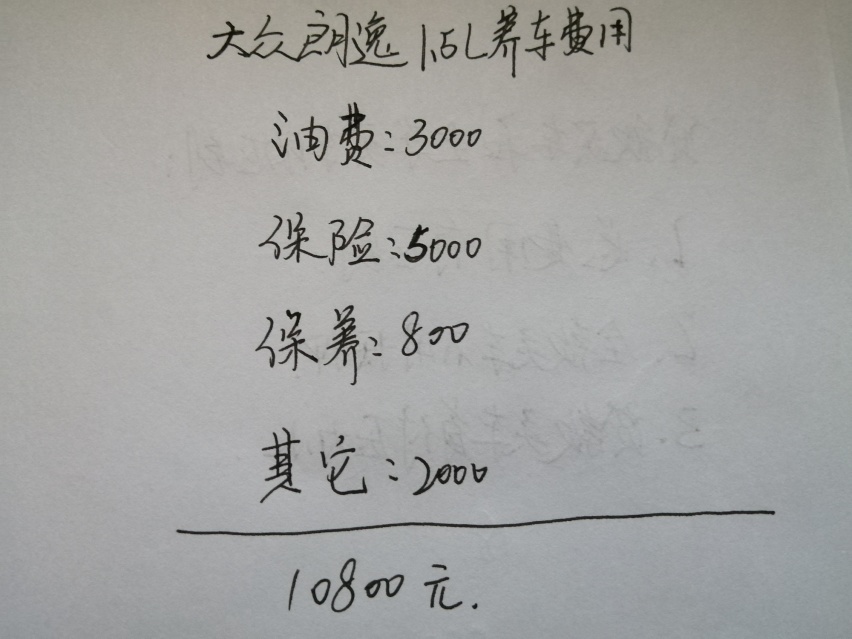 大众朗逸1.5L养车费用
油费:3000
保险:5000
保养:800
其它:2000
10800元.